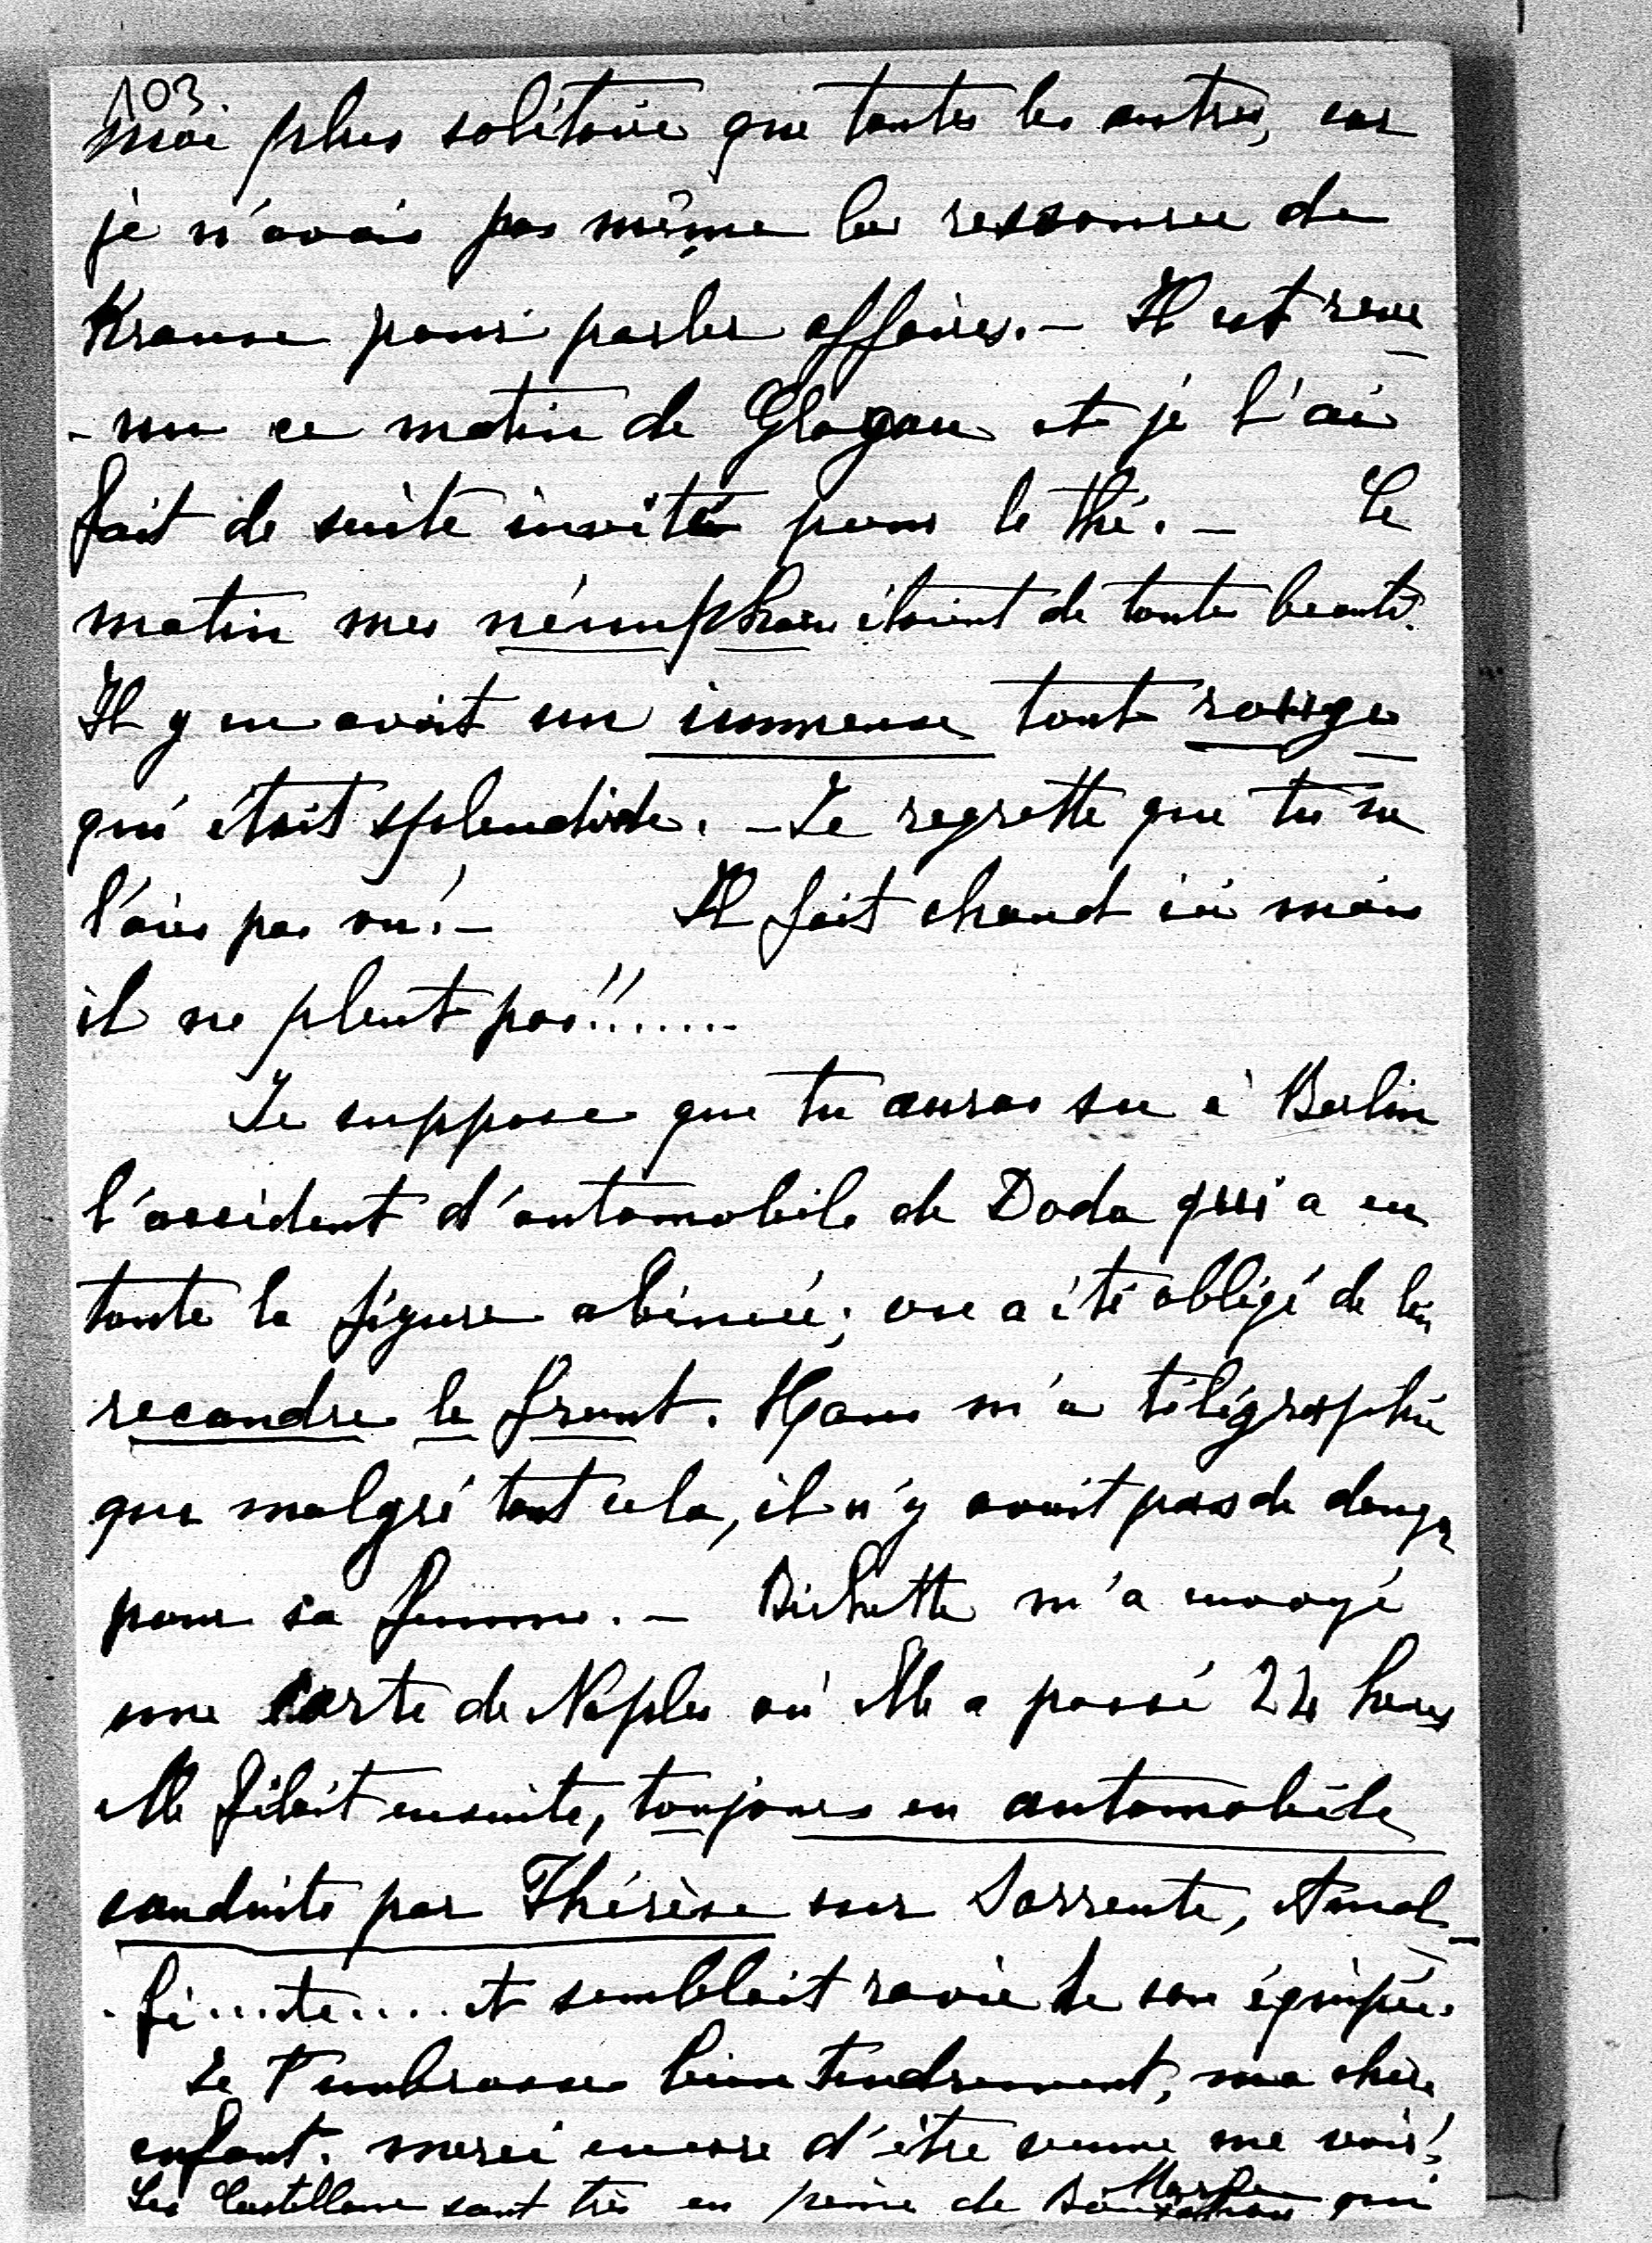 103.
moi plus solitaire que toutes les autres, car
je n'avais pas même la ressource de
Krause pour parler affaires. – Il est reve
- nu ce matin de Glogau et je l'ai
fait de suite inviter pour le thé. – Ce
matin mes nénuphars étaient de toute beauté.
Il y en avait un immense tout rouge
qui était splendide. – Je regrette que tu ne
l'aies pas vu! – Il fait chaud ici mais
il ne pleut pas!!.......
Je suppose que tu auras su à Berlin
l'accident d'automobile de Doda qui a eu
toute la figure abîmée; on a été obligé de lui
recoudre le front. Hans m'a télégraphié
que malgré tout cela, il n'y avait pas de danger
pour sa femme. – Bichette m'a envoyé
une carte de Naples où elle a passé 24 heures
elle filait ensuite, toujours en automobile
conduite par Thérèse sur Sorrente, Amal-
- fi...te.... et semblait ravie de son équipée.
Je t'embrasse bien tendrement, ma chère
enfant. merci encore d'être venue me voir!
Les Castellane sont très en peine de qui